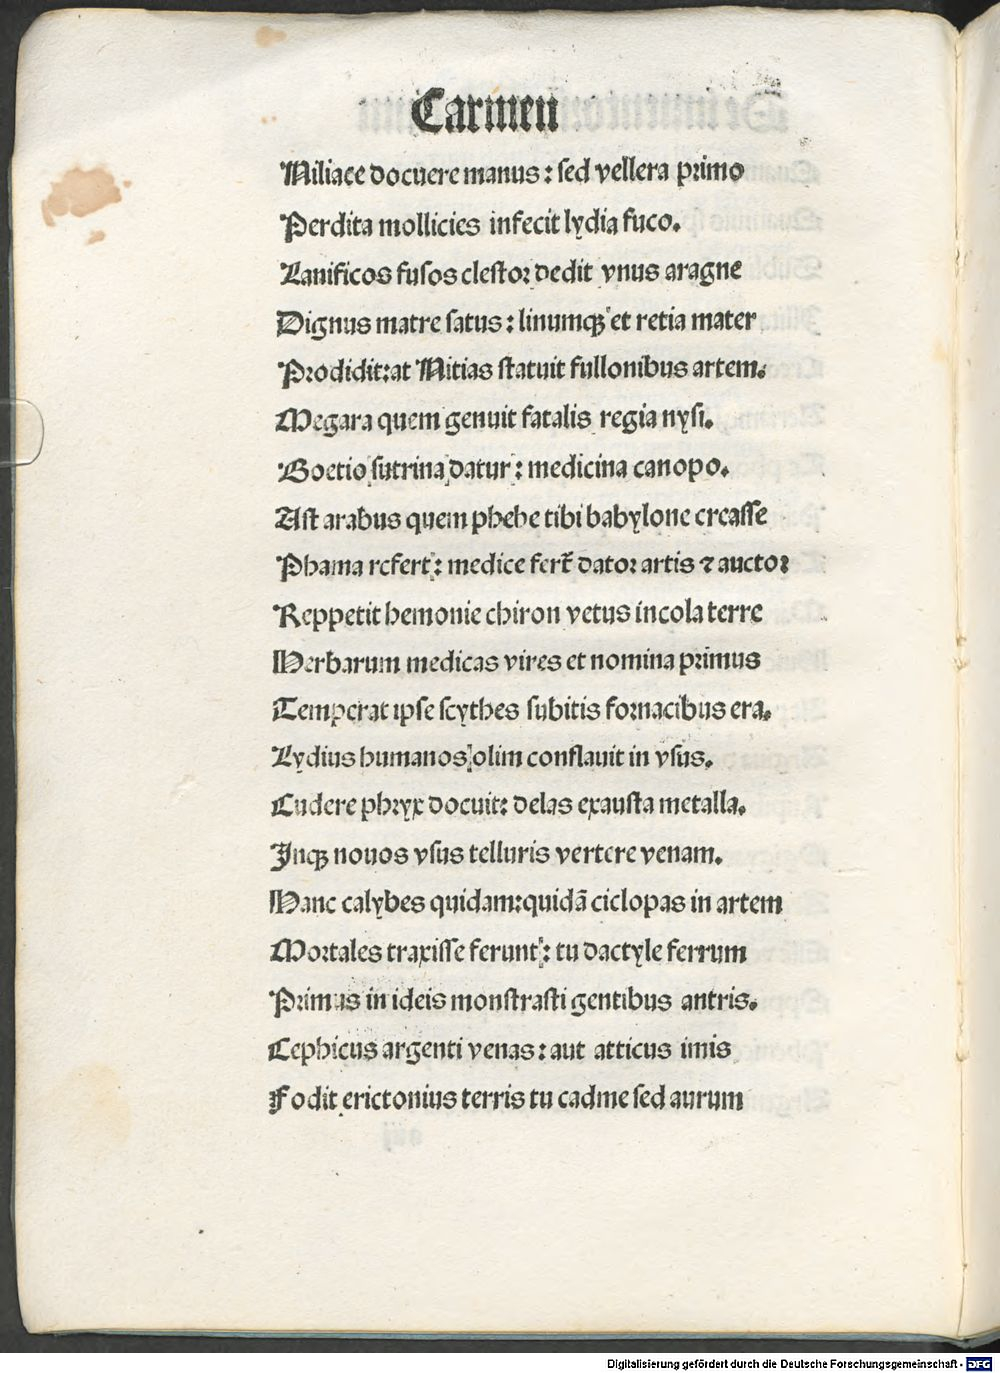 Carmen
Niliace docuere manus: sed vellera primo
Perdita mollicies infecit lydia fuco.
Lanificos fusos clestor dedit vnus aragne
Dignus matre satus: linumqꝫ et retia mater
Prodidit: at Nitias statuit fullonibus artem.
Megara quem genuit fatalis regia nysi.
Boetio sutrina datur: medicina canopo.
Ast arabus quem phebe tibi babylone creasse
Phama refert: medice fert̄ dator artis ⁊ auctor
Reppetit hemonie chiron vetus incola terre
Herbarum medicas vires et nomina primus
Temperat ipse scythes subitis fornacibus era.
Lydius humanos olim conflauit in vsus.
Cudere phryx docuit: delas exausta metalla.
Inqꝫ nouos vsus telluris vertere venam.
Hanc calybes quidam: quidā ciclopas in artem
Mortales traxisse ferunt: tu dactyle ferrum
Primus in ideis monstrasti gentibus antris.
Cephicus argenti venas: aut atticus imis
Fodit erictonius terris tu cadme sed aurum
Digitalisierung gefördert durch die Deutsche Forschungsgemeinschaft - DFG